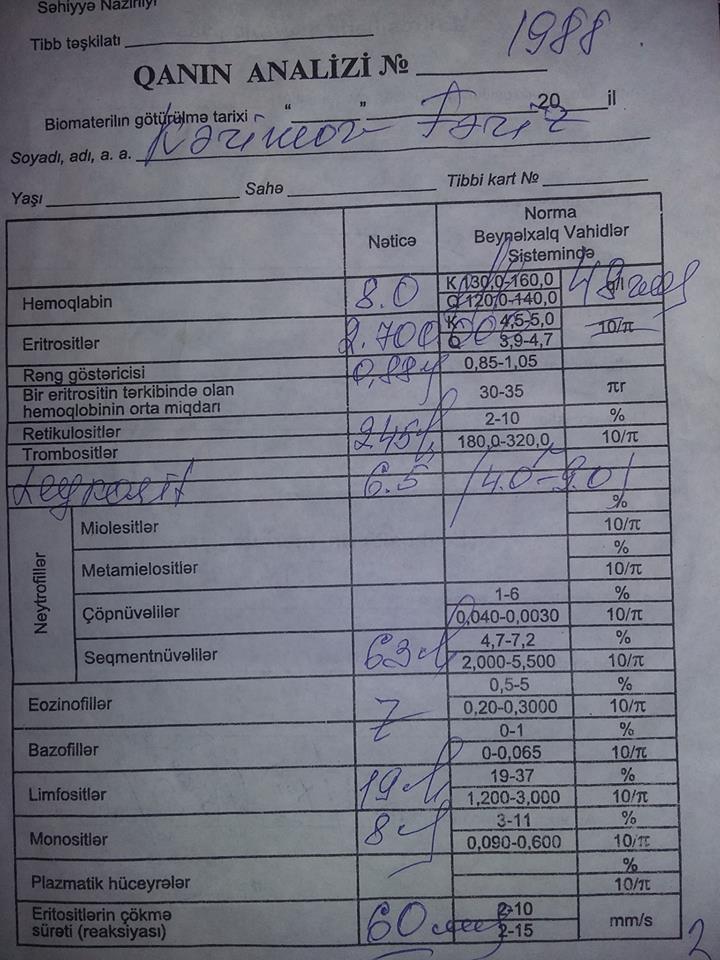 Səhiyyə Nazirliyi
Tibb təşkilatı
1988
QANIN ANALİZİ №
Biomaterilın götürülmə tarixi “ ” 20 il
Soyadı, adı, a. a. Kərimov
Yaşı Sahə Tibbi kart №
Nəticə
Norma
Beynəlxalq Vahidlər
Sistemində
Hemoqlabin 8.0 K 130,0-160,0 g/l
Q 120,0-140,0
Eritrositlər 2.700.000 K 4,5-5,0 10/π
Q 3,9-4,7
Rəng göstəricisi 0,88 0,85-1,05
Bir eritrositin tərkibində olan
hemoqlobinin orta miqdarı 30-35 πr
Retikulositlər 2-10 %
Trombositlər 245 180,0-320,0 10/π
Leykosit 6.5 (4.0-9.0)
Neytrofillər
Miolesitlər %
10/π
Metamielositlər %
10/π
Çöpnüvəlilər 1-6 %
0,040-0,0030 10/π
Seqmentnüvəlilər 63 4,7-7,2 %
2,000-5,500 10/π
Eozinofillər 0,5-5 %
0,20-0,3000 10/π
Bazofillər 0-1 %
0-0,065 10/π
Limfositlər 19 19-37 %
1,200-3,000 10/π
Monositlər 8 3-11 %
0,090-0,600 10/π
Plazmatik hüceyrələr %
10/π
Eritositlərin çökmə
sürəti (reaksiyası) 60 2-10 mm/s
2-15
2